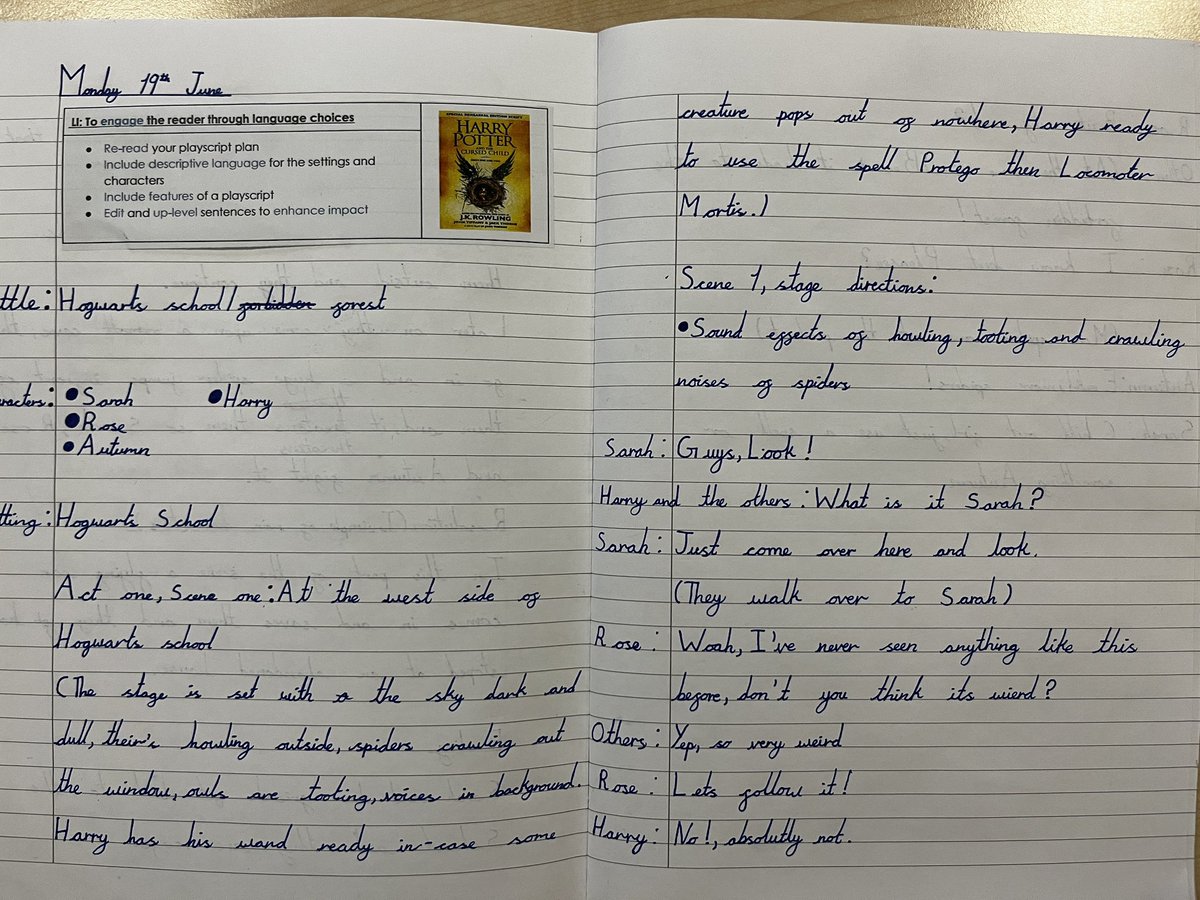 Monday 19th June
LI: To engage the reader through language choices
• Re-read your playscript plan
• Include descriptive language for the settings and
characters
• Include features of a playscript
• Edit and up-level sentences to enhance impact
SPECIAL REHEARSAL EDITION SCRIPT
HARRY
POTTER
AND THE
CURSED CHILD
J.K. ROWLING
ttle: Hogwarts school/forbidden forest
racters: • Sarah • Harry
• Rose
• Autumn
tting: Hogwarts School
Act one, Scene one: At the west side of
Hogwarts school
(The stage is set with the sky dark and
dull, their's howling outside, spiders crawling out
the window, owls are tooting, voices in background.
Harry has his wand ready in-case some
creature pops out of nowhere, Harry ready
to use the spell Protego then Locomoter
Mortis.)
Scene 1, stage directions:
• Sound effects of howling, tooting and crawling
noises of spiders
Sarah: Guys, Look!
Harry and the others: What is it Sarah?
Sarah: Just come over here and look.
(They walk over to Sarah)
Rose: Woah, I've never seen anything like this
before, don't you think its wierd?
Others: Yep, so very weird
Rose: Lets follow it!
Harry: No!, absolutly not.